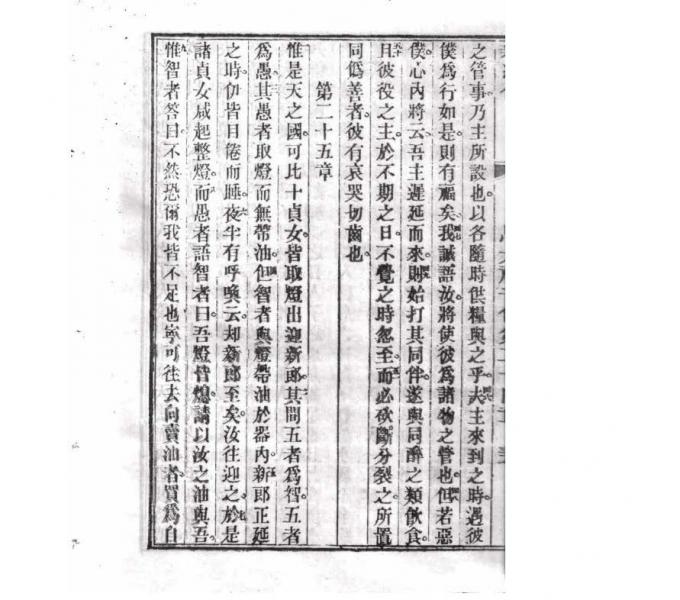 之管事乃主所設也以各隨時供糧與之乎夫主來到之時遇彼
僕為行如是則有福矣我誠語汝將使彼為諸物之管也但若惡
僕心內將云吾主遲延而來則始打其同伴遂與同醉之類飲食
且彼役之主於不期之日不覺之時忽至而必砍斷分裂之所置
同僞善者彼有哀哭切齒也
第二十五章
惟是天之國可比十貞女皆取燈出迎新郎其間五者為智五者
為愚其愚者取燈而無帶油但智者與燈帶油於器內新郎正延
之時伊皆目倦而睡夜半有呼喚云却新郎至矣汝往迎之於是
諸貞女咸起整燈而愚者語智者曰吾燈皆熄請以汝之油與吾
惟智者答曰不然恐爾我皆不足也寧可往去向賣油者買為自